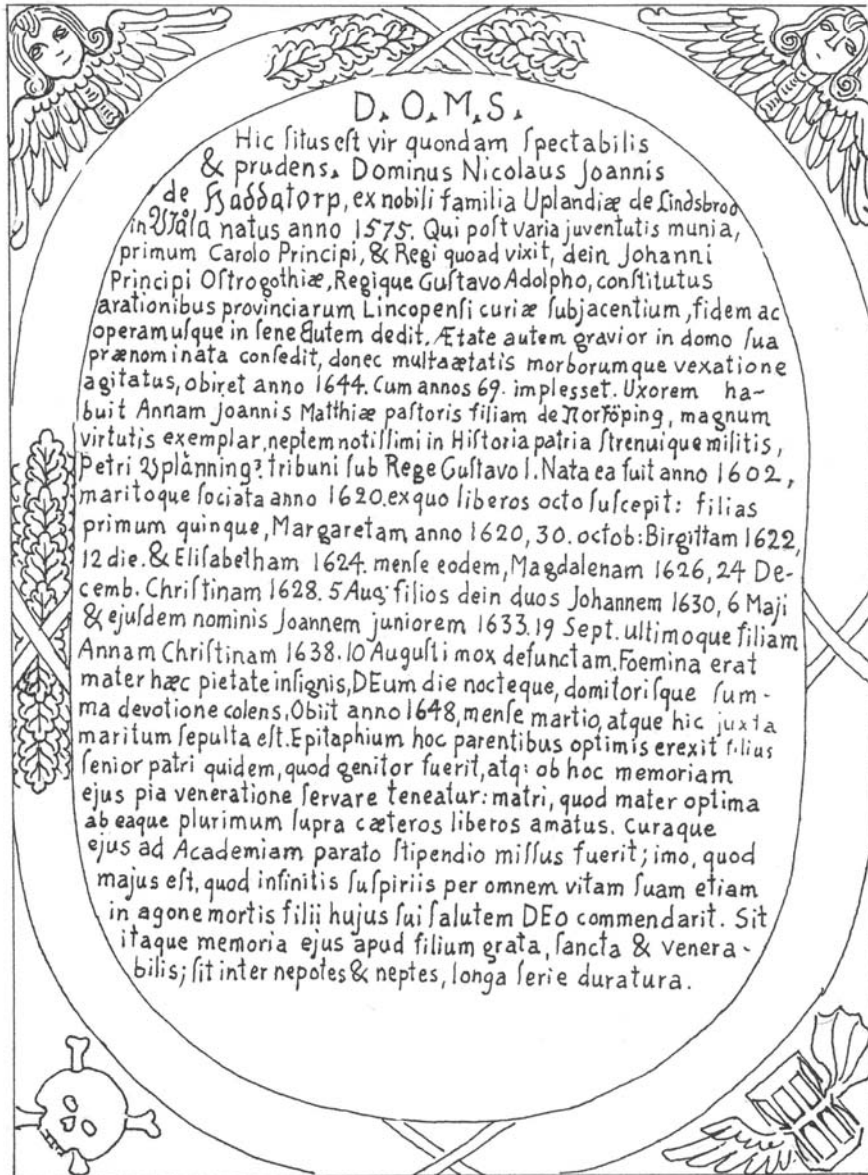 D. O. M. S.
Hic ſitus eſt vir quondam ſpectabilis
& prudens. Dominus Nicolaus Joannis
de Haddatorp, ex nobili familia Uplandiæ de Lindsbroo
in Wåla natus anno 1575. Qui poſt varia juventutis munia,
primum Carolo Principi, & Regi quoad vixit, dein Johanni
Principi Oſtrogothiæ, Regique Guſtavo Adolpho, conſtitutus
arationibus provinciarum Lincopenſi curiæ ſubjacentium, fidem ac
operam uſque in ſene utem dedit. Ætate autem gravior in domo ſua
prænominata conſedit, donec multa ætatis morborumque vexatione
agitatus, obiret anno 1644. Cum annos 69. implesset. Uxorem ha-
buit Annam Joannis Matthiæ paſtoris filiam de Norköping, magnum
virtutis exemplar, neptem notiſſimi in Hiſtoria patria ſtrenuique militis,
Petri Uplänning? tribuni ſub Rege Guſtavo I. Nata ea fuit anno 1602,
maritoque ſociata anno 1620. ex quo liberos octo ſuſcepit: filias
primum quinque, Margaretam anno 1620, 30. octob: Birgittam 1622,
12 die. & Eliſabetham 1624. menſe eodem, Magdalenam 1626, 24 De-
cemb. Chriſtinam 1628. 5 Aug: filios dein duos Johannem 1630, 6 Maji
& ejuſdem nominis Joannem juniorem 1633. 19 Sept. ultimoque filiam
Annam Chriſtinam 1638. 10 Auguſti mox defunctam. Foemina erat
mater hæc pietate inſignis, DEum die nocteque, domitoriſque ſum-
ma devotione colens, Obiit anno 1648, menſe martio, atque hic juxta
maritum ſepulta eſt. Epitaphium hoc parentibus optimis erexit filius
ſenior patri quidem, quod genitor fuerit, atq: ob hoc memoriam
ejus pia veneratione ſervare teneatur: matri, quod mater optima
ab eaque plurimum ſupra cæteros liberos amatus. Curaque
ejus ad Academiam parato ſtipendio miſſus fuerit; imo, quod
majus eſt, quod infinitis ſuſpiriis per omnem vitam ſuam etiam
in agone mortis filii hujus ſui ſalutem DEo commendarit. Sit
itaque memoria ejus apud filium grata, ſancta & venera-
bilis; ſit inter nepotes & neptes, longa ſerie duratura.